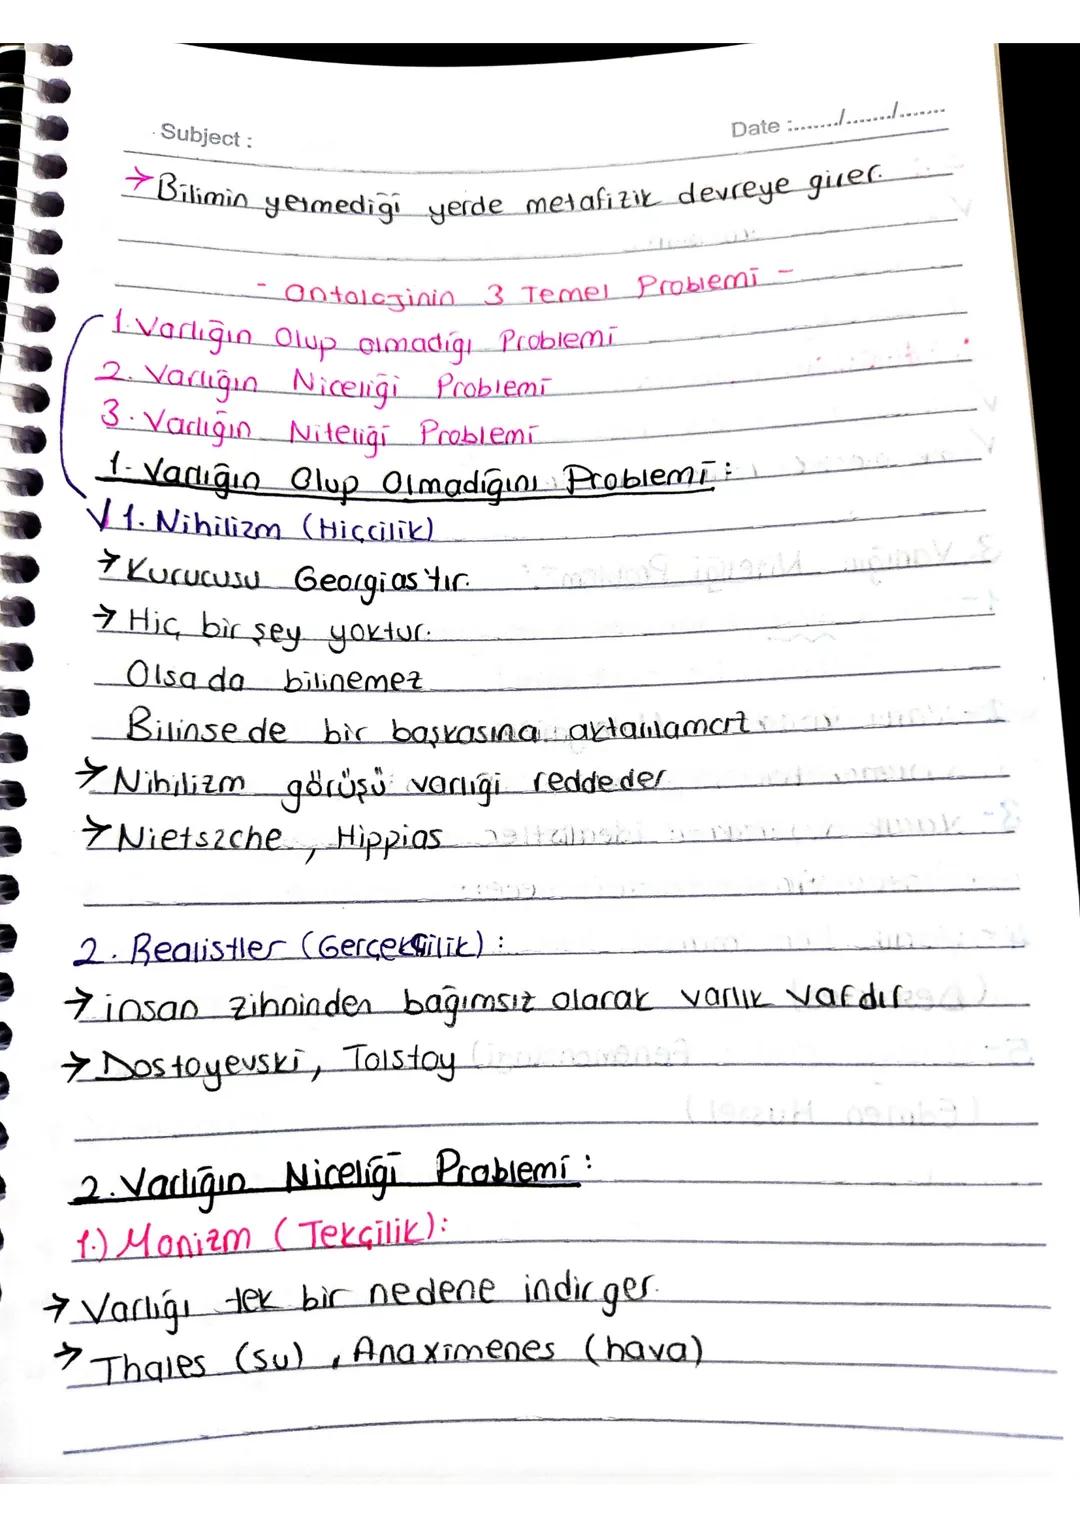 Subject :
Date :......./......./.......
→ Bilimin yetmediği yerde metafizik devreye girer.
- Ontolojinin 3 Temel Problemi -
1. Varlığın Olup olmadığı Problemi
2. Varlığın Niceliği Problemi
3. Varlığın Niteliği Problemi
1- Varlığın Olup Olmadığını Problemi :
√ 1. Nihilizm (Hiççilik)
→ Kurucusu Georgias'tır.
→ Hiç bir şey yoktur.
Olsa da bilinemez
Bilinse de bir başkasına aktarılamaz
→ Nihilizm görüşü varlığı reddeder
→ Nietszche , Hippias
2. Realistler (Gerçekçilik) :
→ insan zihninden bağımsız olarak varlık vardır
→ Dostoyevski, Tolstoy
2. Varlığın Niceliği Problemi :
1.) Monizm ( Tekçilik) :
→ Varlığı tek bir nedene indirger.
→ Thales (su) , Anaximenes (hava)